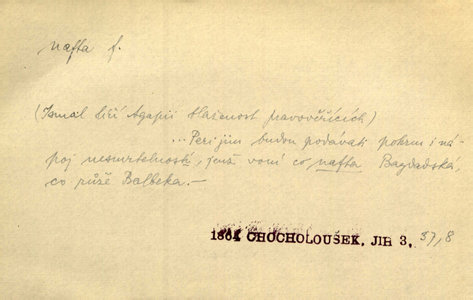 nafta f.
(Ismael líčí Agapii blaženost pravověřících)
... Peri jim budou podávati pokrm i ná-
poj nesmrtelnosti, jenž voní co nafta Bagdadská,
co růže Balbeka. —
1864 CHOCHOLOUŠEK, JIH 3, 37,8